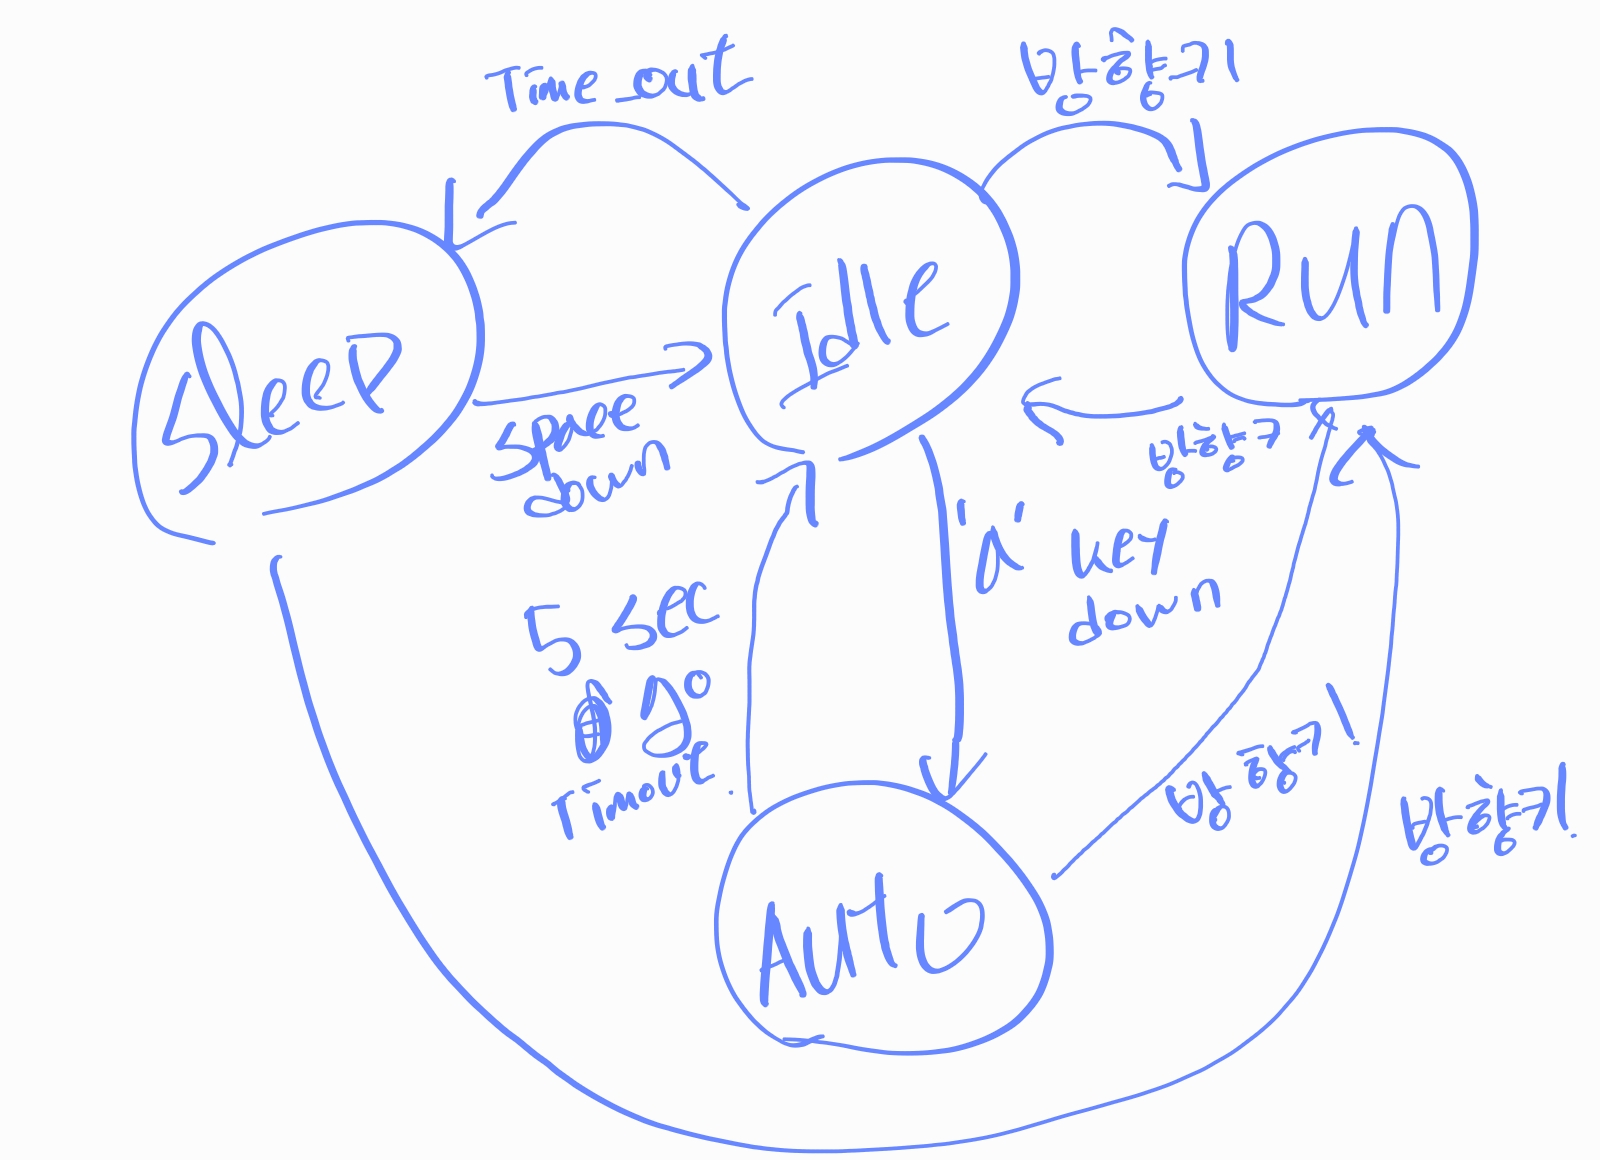 Time_out
방향키
Sleep
Idle
RUN
space
down
방향키
'a' key
down
5 sec
go
Timout.
방향키!
방향키!
AUTO